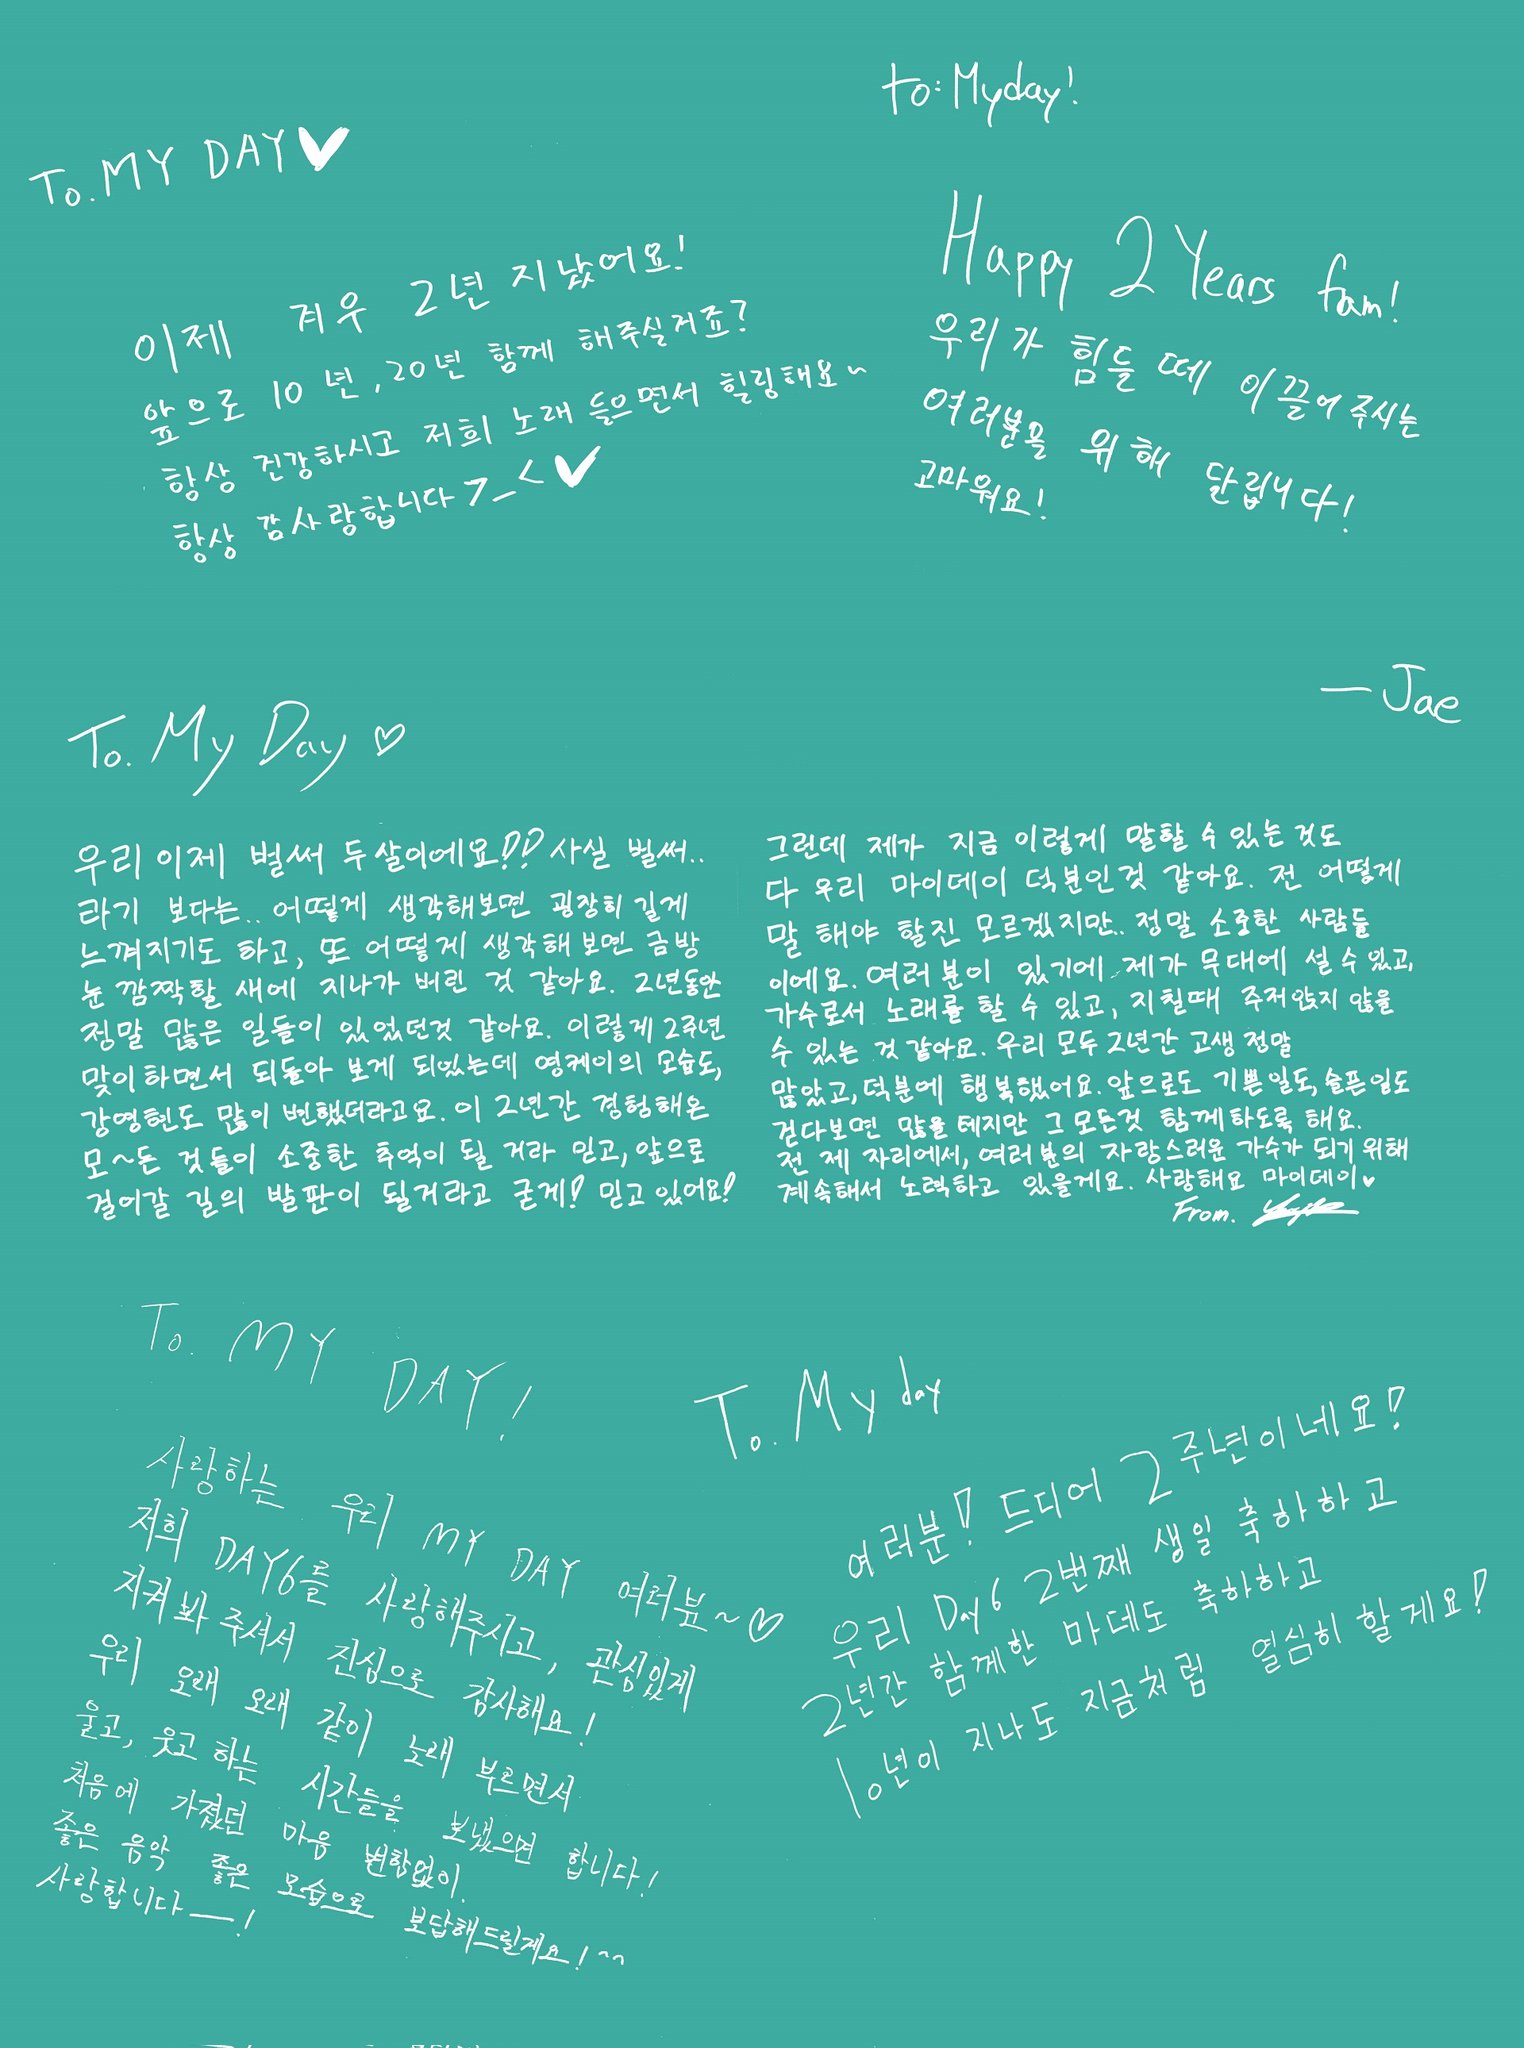 To. MY DAY♥
이제 겨우 2년 지났어요!
앞으로 10년, 20년 함께 해주실거죠?
항상 건강하시고 저희 노래 들으면서 힐링해요~
항상 감사랑합니다 >_< ♥
to: Myday!
Happy 2 Years fam!
우리가 힘들 때 이끌어 주시는
여러분을 위해 달립니다!
고마워요!
— Jae
To. My Day ♡
우리 이제 벌써 두살이에요!!? 사실 벌써..
라기 보다는.. 어떻게 생각해보면 굉장히 길게
느껴지기도 하고, 또 어떻게 생각해보면 금방
눈 깜짝할 새에 지나가 버린 것 같아요. 2년동안
정말 많은 일들이 있었던것 같아요. 이렇게 2주년
맞이하면서 되돌아 보게 되었는데 영케이의 모습도,
강영현도 많이 변했더라고요. 이 2년간 경험해온
모~든 것들이 소중한 추억이 될 거라 믿고, 앞으로
걸어갈 길의 발판이 될거라고 굳게! 믿고 있어요!
그런데 제가 지금 이렇게 말할 수 있는 것도
다 우리 마이데이 덕분인것 같아요. 전 어떻게
말 해야 할진 모르겠지만.. 정말 소중한 사람들
이에요. 여러분이 있기에 제가 무대에 설 수 있고,
가수로서 노래를 할 수 있고, 지칠때 주저앉지 않을
수 있는 것 같아요. 우리 모두 2년간 고생 정말
많았고, 덕분에 행복했어요. 앞으로도 기쁜일도, 슬픈일도
걷다보면 많을 테지만 그 모든것 함께하도록 해요.
전 제 자리에서, 여러분의 자랑스러운 가수가 되기 위해
계속해서 노력하고 있을게요. 사랑해요 마이데이♥
From.
To. MY DAY!
사랑하는 우리 MY DAY 여러분~♡
저희 DAY6를 사랑해주시고, 관심있게
지켜봐 주셔서 진심으로 감사해요!
우리 오래 오래 같이 노래 부르면서
울고, 웃고 하는 시간들을 보냈으면 합니다!
처음에 가졌던 마음 변함없이.
좋은 음악 좋은 모습으로 보답해드릴게요! ^^
사랑합니다—!
To. My day
여러분! 드디어 2주년이네요!
우리 Day6 2번째 생일 축하하고
2년간 함께한 마데도 축하하고
10년이 지나도 지금처럼 열심히 할게요!